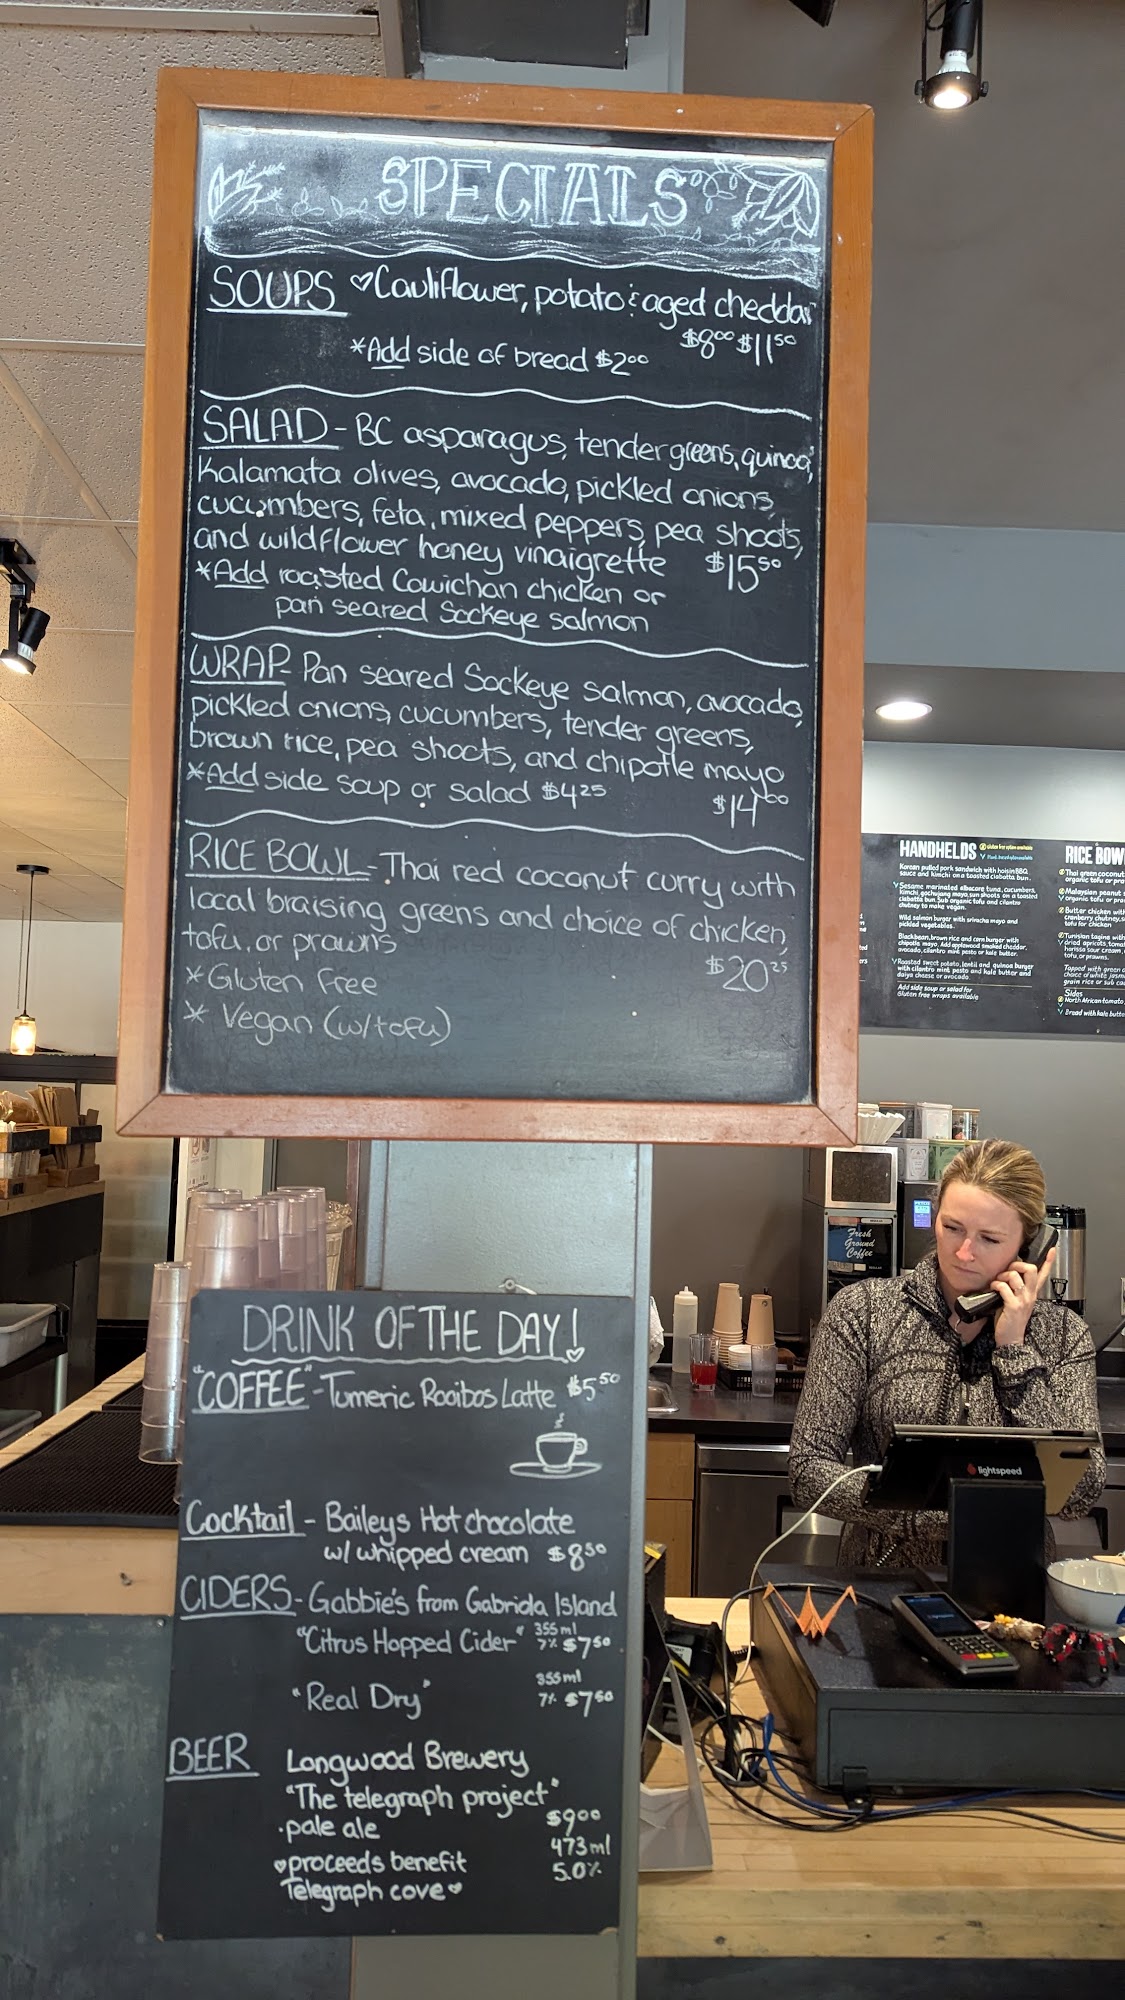 SPECIALS
SOUPS ♡Cauliflower, potato & aged cheddar
$8.00 $11.50
*Add side of bread $2.00
SALAD - BC asparagus, tender greens, quinoa,
Kalamata olives, avocado, pickled onions,
cucumbers, feta, mixed peppers, pea shoots,
and wildflower honey vinaigrette $15.50
*Add roasted Cowichan chicken or
pan seared Sockeye salmon
WRAP- Pan seared Sockeye salmon, avocado,
pickled onions, cucumbers, tender greens,
brown rice, pea shoots, and chipotle mayo
*Add side soup or salad $4.25 $14.00
RICE BOWL - Thai red coconut curry with
local braising greens and choice of chicken,
tofu, or prawns $20.25
* Gluten Free
* Vegan (w/tofu)
HANDHELDS
Korean pulled pork sandwich with hoisin BBQ
sauce and kimchi on a toasted ciabatta bun.
Sesame marinated albacore tuna, cucumbers,
kimchi, gochujang mayo, sun shoots on a toasted
ciabatta bun. Sub organic tofu and cilantro
chutney to make vegan.
Wild salmon burger with sriracha mayo and
pickled vegetables.
Black bean, brown rice and corn burger with
chipotle mayo. Add applewood smoked cheddar,
avocado, cilantro mint pesto or kale butter.
Roasted sweet potato, lentil and quinoa burger
with cilantro mint pesto and kale butter and
daiya cheese or avocado.
Add side soup or salad for
Gluten free wraps available
RICE BOW
Thai green coconut
organic tofu or pra
Malaysian peanut
organic tofu or pra
Butter chicken with
cranberry chutney, s
tofu for chicken
Tunisian tagine with
dried apricots, tomat
harissa sour cream,
tofu, or prawns.
Topped with green o
choice of white jasm
grain rice or sub cau
Sides
North African tomato
Bread with kale butte
Fresh
Ground
Coffee
DRINK OF THE DAY!
"COFFEE" - Tumeric Rooibos Latte $5.50
Cocktail - Baileys Hot chocolate
w/ whipped cream $8.50
CIDERS - Gabbie's from Gabriola Island
"Citrus Hopped Cider" 355ml 7% $7.50
"Real Dry" 355ml 7% $7.50
BEER Longwood Brewery
"The telegraph project"
·pale ale $9.00
473ml
♡proceeds benefit 5.0%
Telegraph cove♡
lightspeed